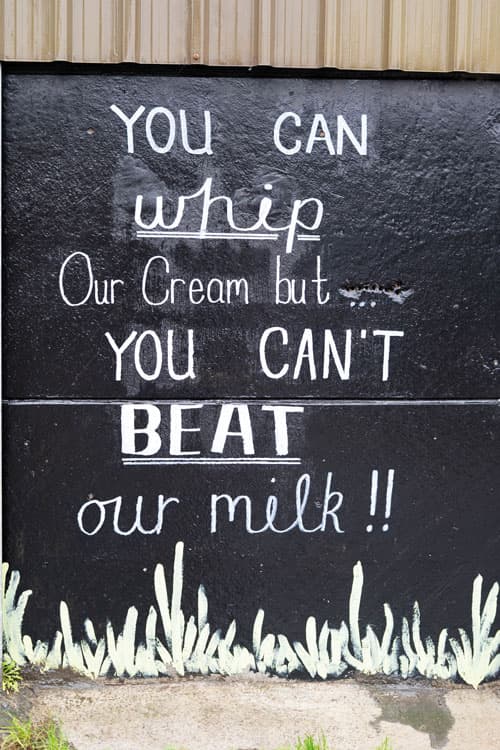 YOU CAN
whip
Our Cream but ...
YOU CAN'T
BEAT
our milk !!